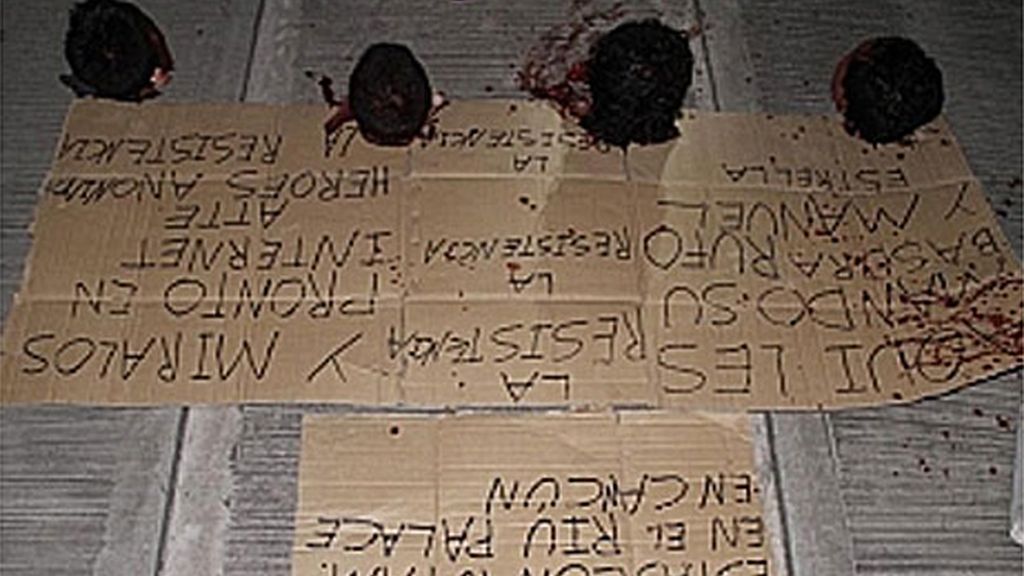 ESTAS CON
EN EL RIU PALACE
-EN CANCUN
QUI LES
MANDO SU
BASURA RUFO
Y MANUEL
ESTRELLA
LA
RESISTENCIA
LA
RESISTENCIA
LA
RESISTENCIA
Y MIRALOS
PRONTO EN
INTERNET
ATTE
HEROES ANONIMOS
LA RESISTENCIA